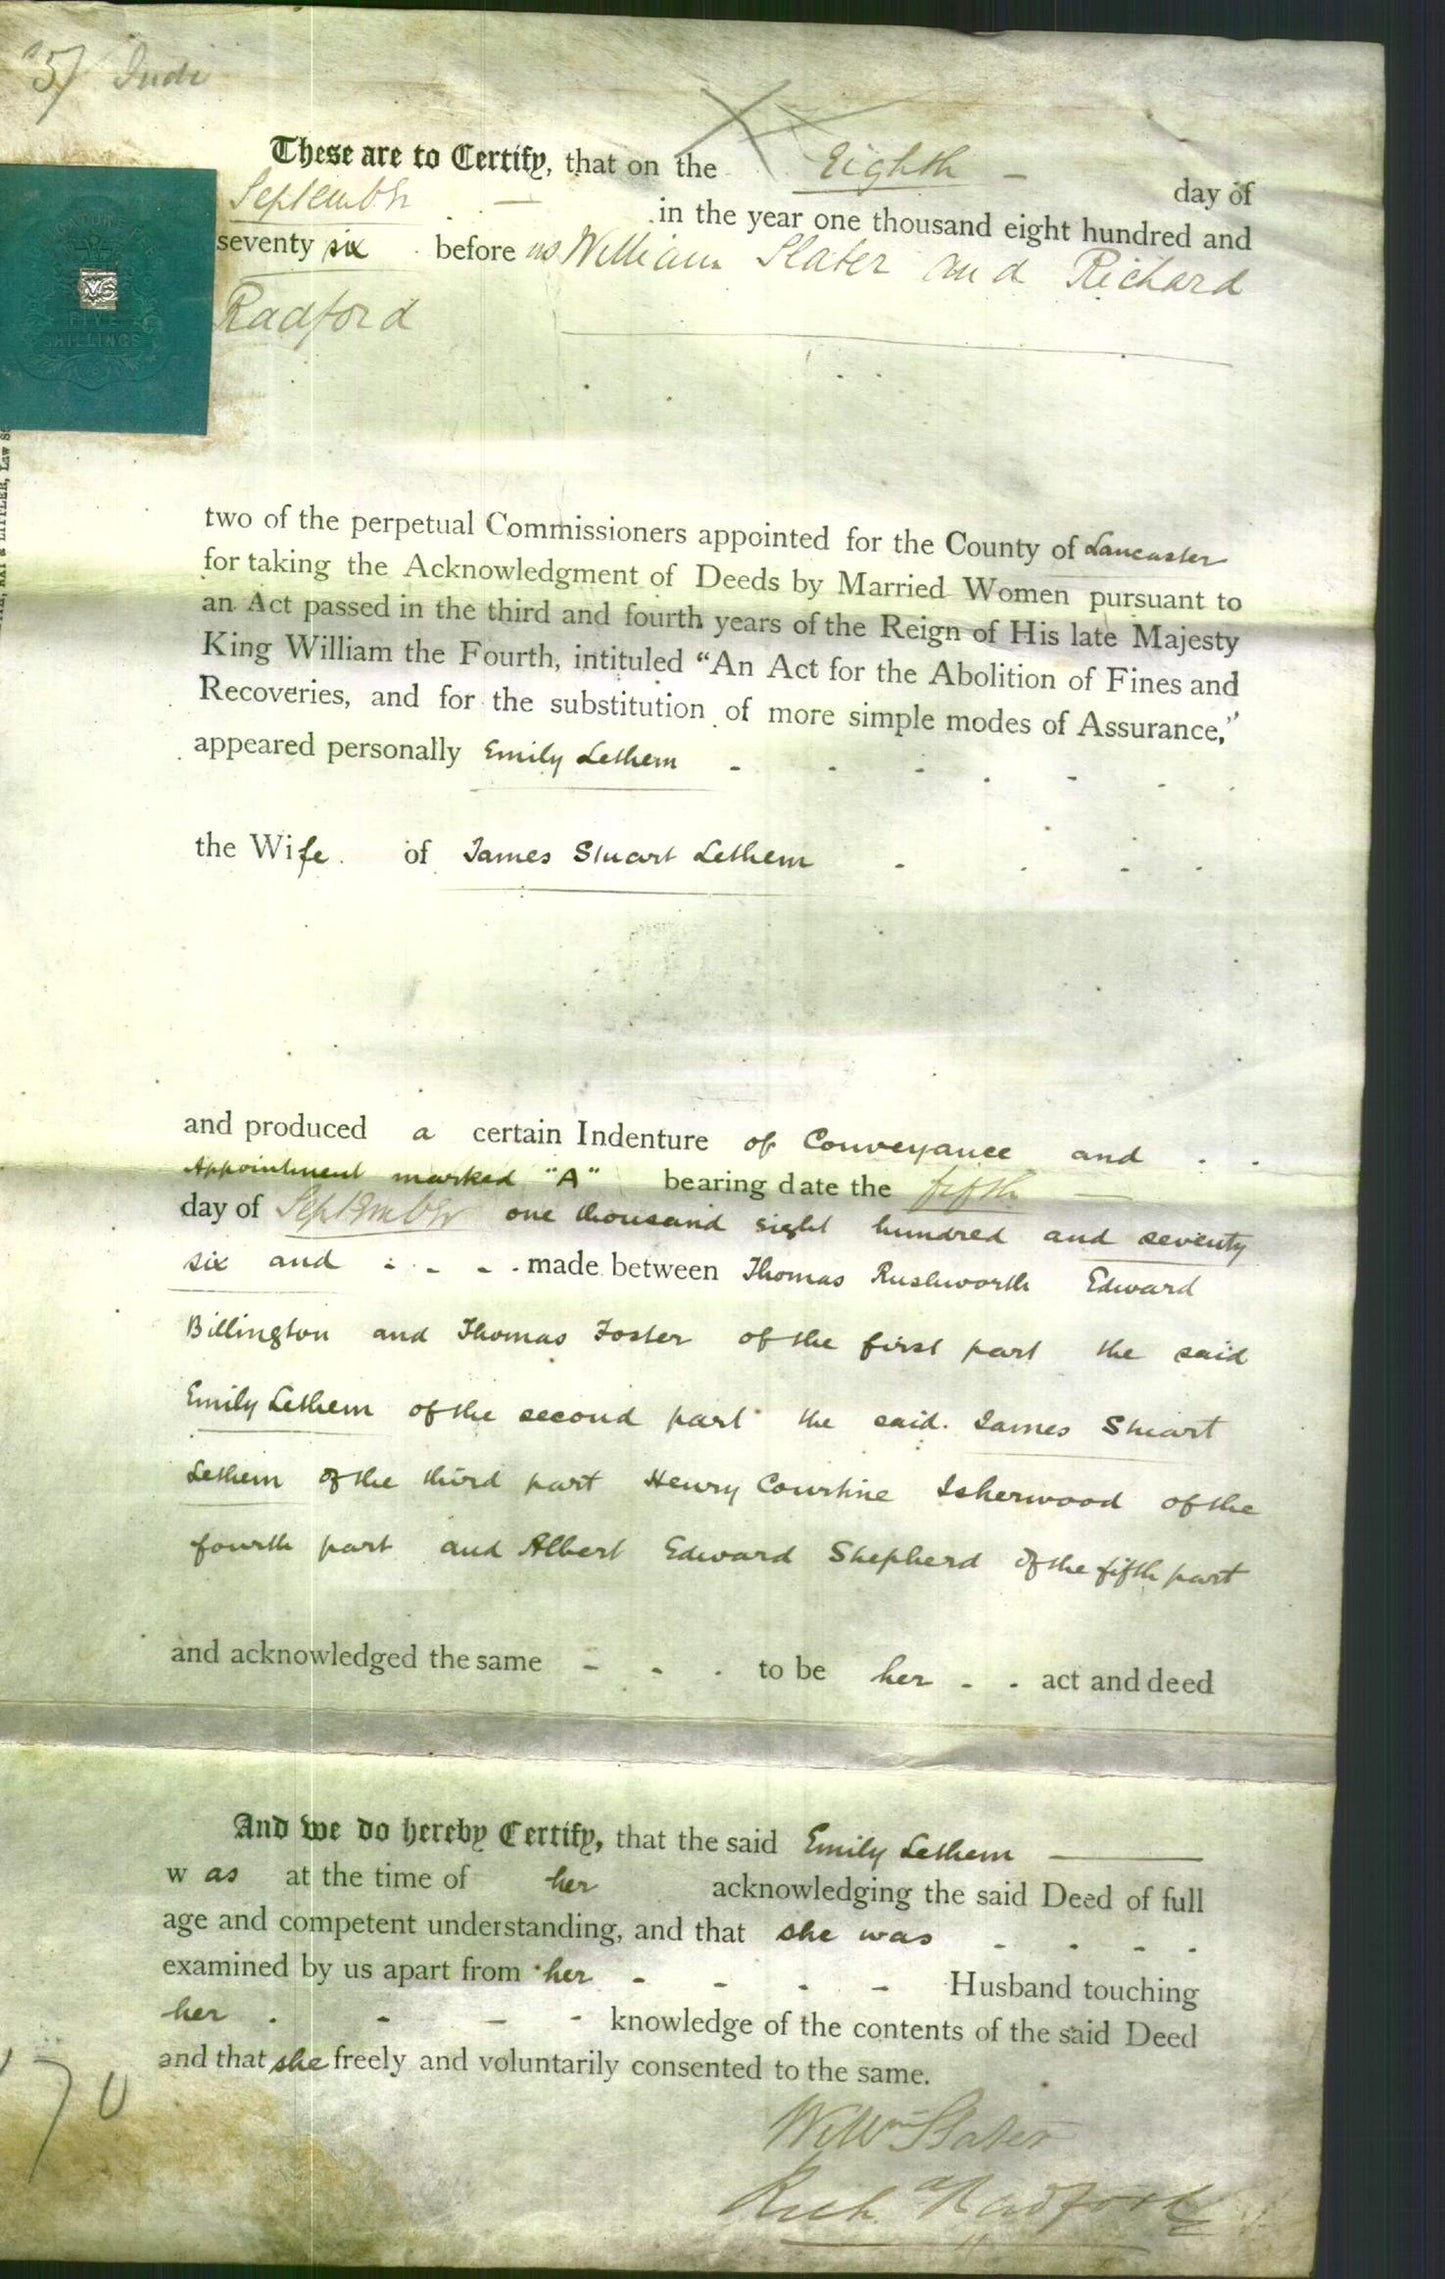 57 Indi
These are to Certify, that on the Eighth - day of
September - in the year one thousand eight hundred and
seventy six before us William Slater and Richard
Radford
SHILLINGS
two of the perpetual Commissioners appointed for the County of Lancaster
for taking the Acknowledgment of Deeds by Married Women pursuant to
an Act passed in the third and fourth years of the Reign of His late Majesty
King William the Fourth, intituled “An Act for the Abolition of Fines and
Recoveries, and for the substitution of more simple modes of Assurance,”
appeared personally Emily Lethem - - - - - -
the Wife of James Stuart Lethem - - - -
and produced a certain Indenture of Conveyance and - -
Appointment marked "A" bearing date the fifth -
day of September one thousand eight hundred and seventy
six and - - - - made between Thomas Rushworth Edward
Billington and Thomas Foster of the first part the said
Emily Lethem of the second part the said James Stuart
Lethem of the third part Henry Courtine Isherwood of the
fourth part and Albert Edward Shepherd of the fifth part
and acknowledged the same - - - to be her - - act and deed
And we do hereby Certify, that the said Emily Lethem
was at the time of her acknowledging the said Deed of full
age and competent understanding, and that she was - - - -
examined by us apart from her - - - - Husband touching
her - - - - knowledge of the contents of the said Deed
and that she freely and voluntarily consented to the same.
70
Willm Slater
Richd Radford